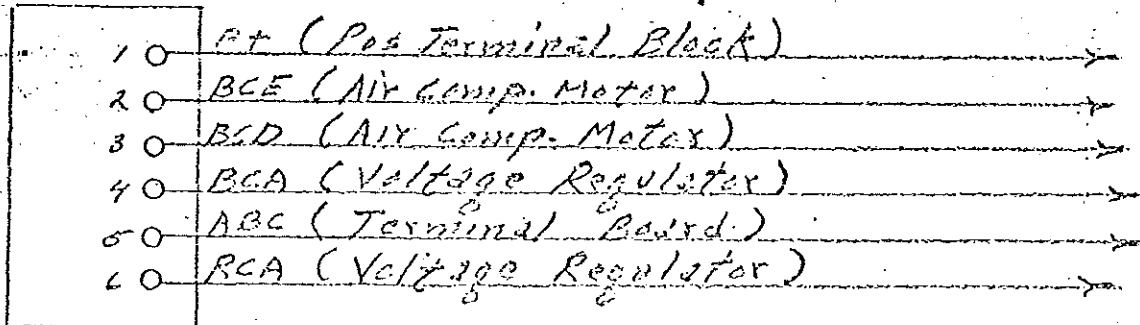 1 P+ (Pos Terminal Block)
2 BCE (Air Comp. Motor)
3 BCD (Air Comp. Motor)
4 BCA (Voltage Regulator)
5 ABC (Terminal Board.)
6 RCA (Voltage Regulator)